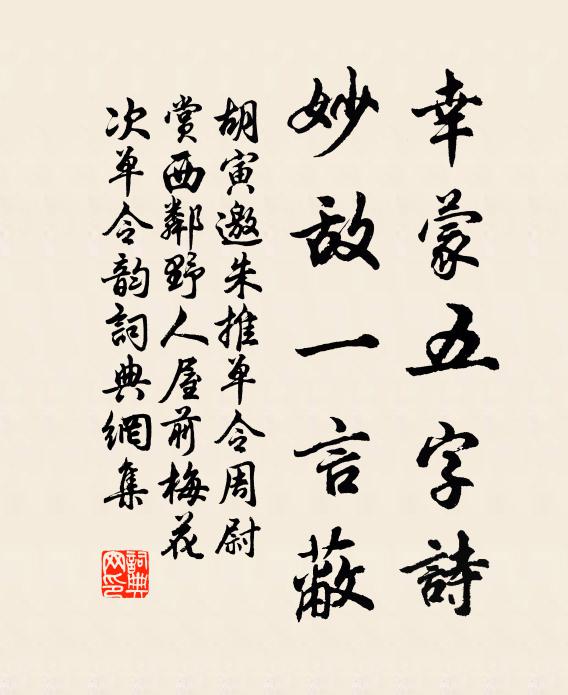 幸蒙五字詩
妙敌一言蔽
胡寅邀朱推单令周尉
赏西鄰野人屋前梅花
次单令韵詞典網集
詞典
网印